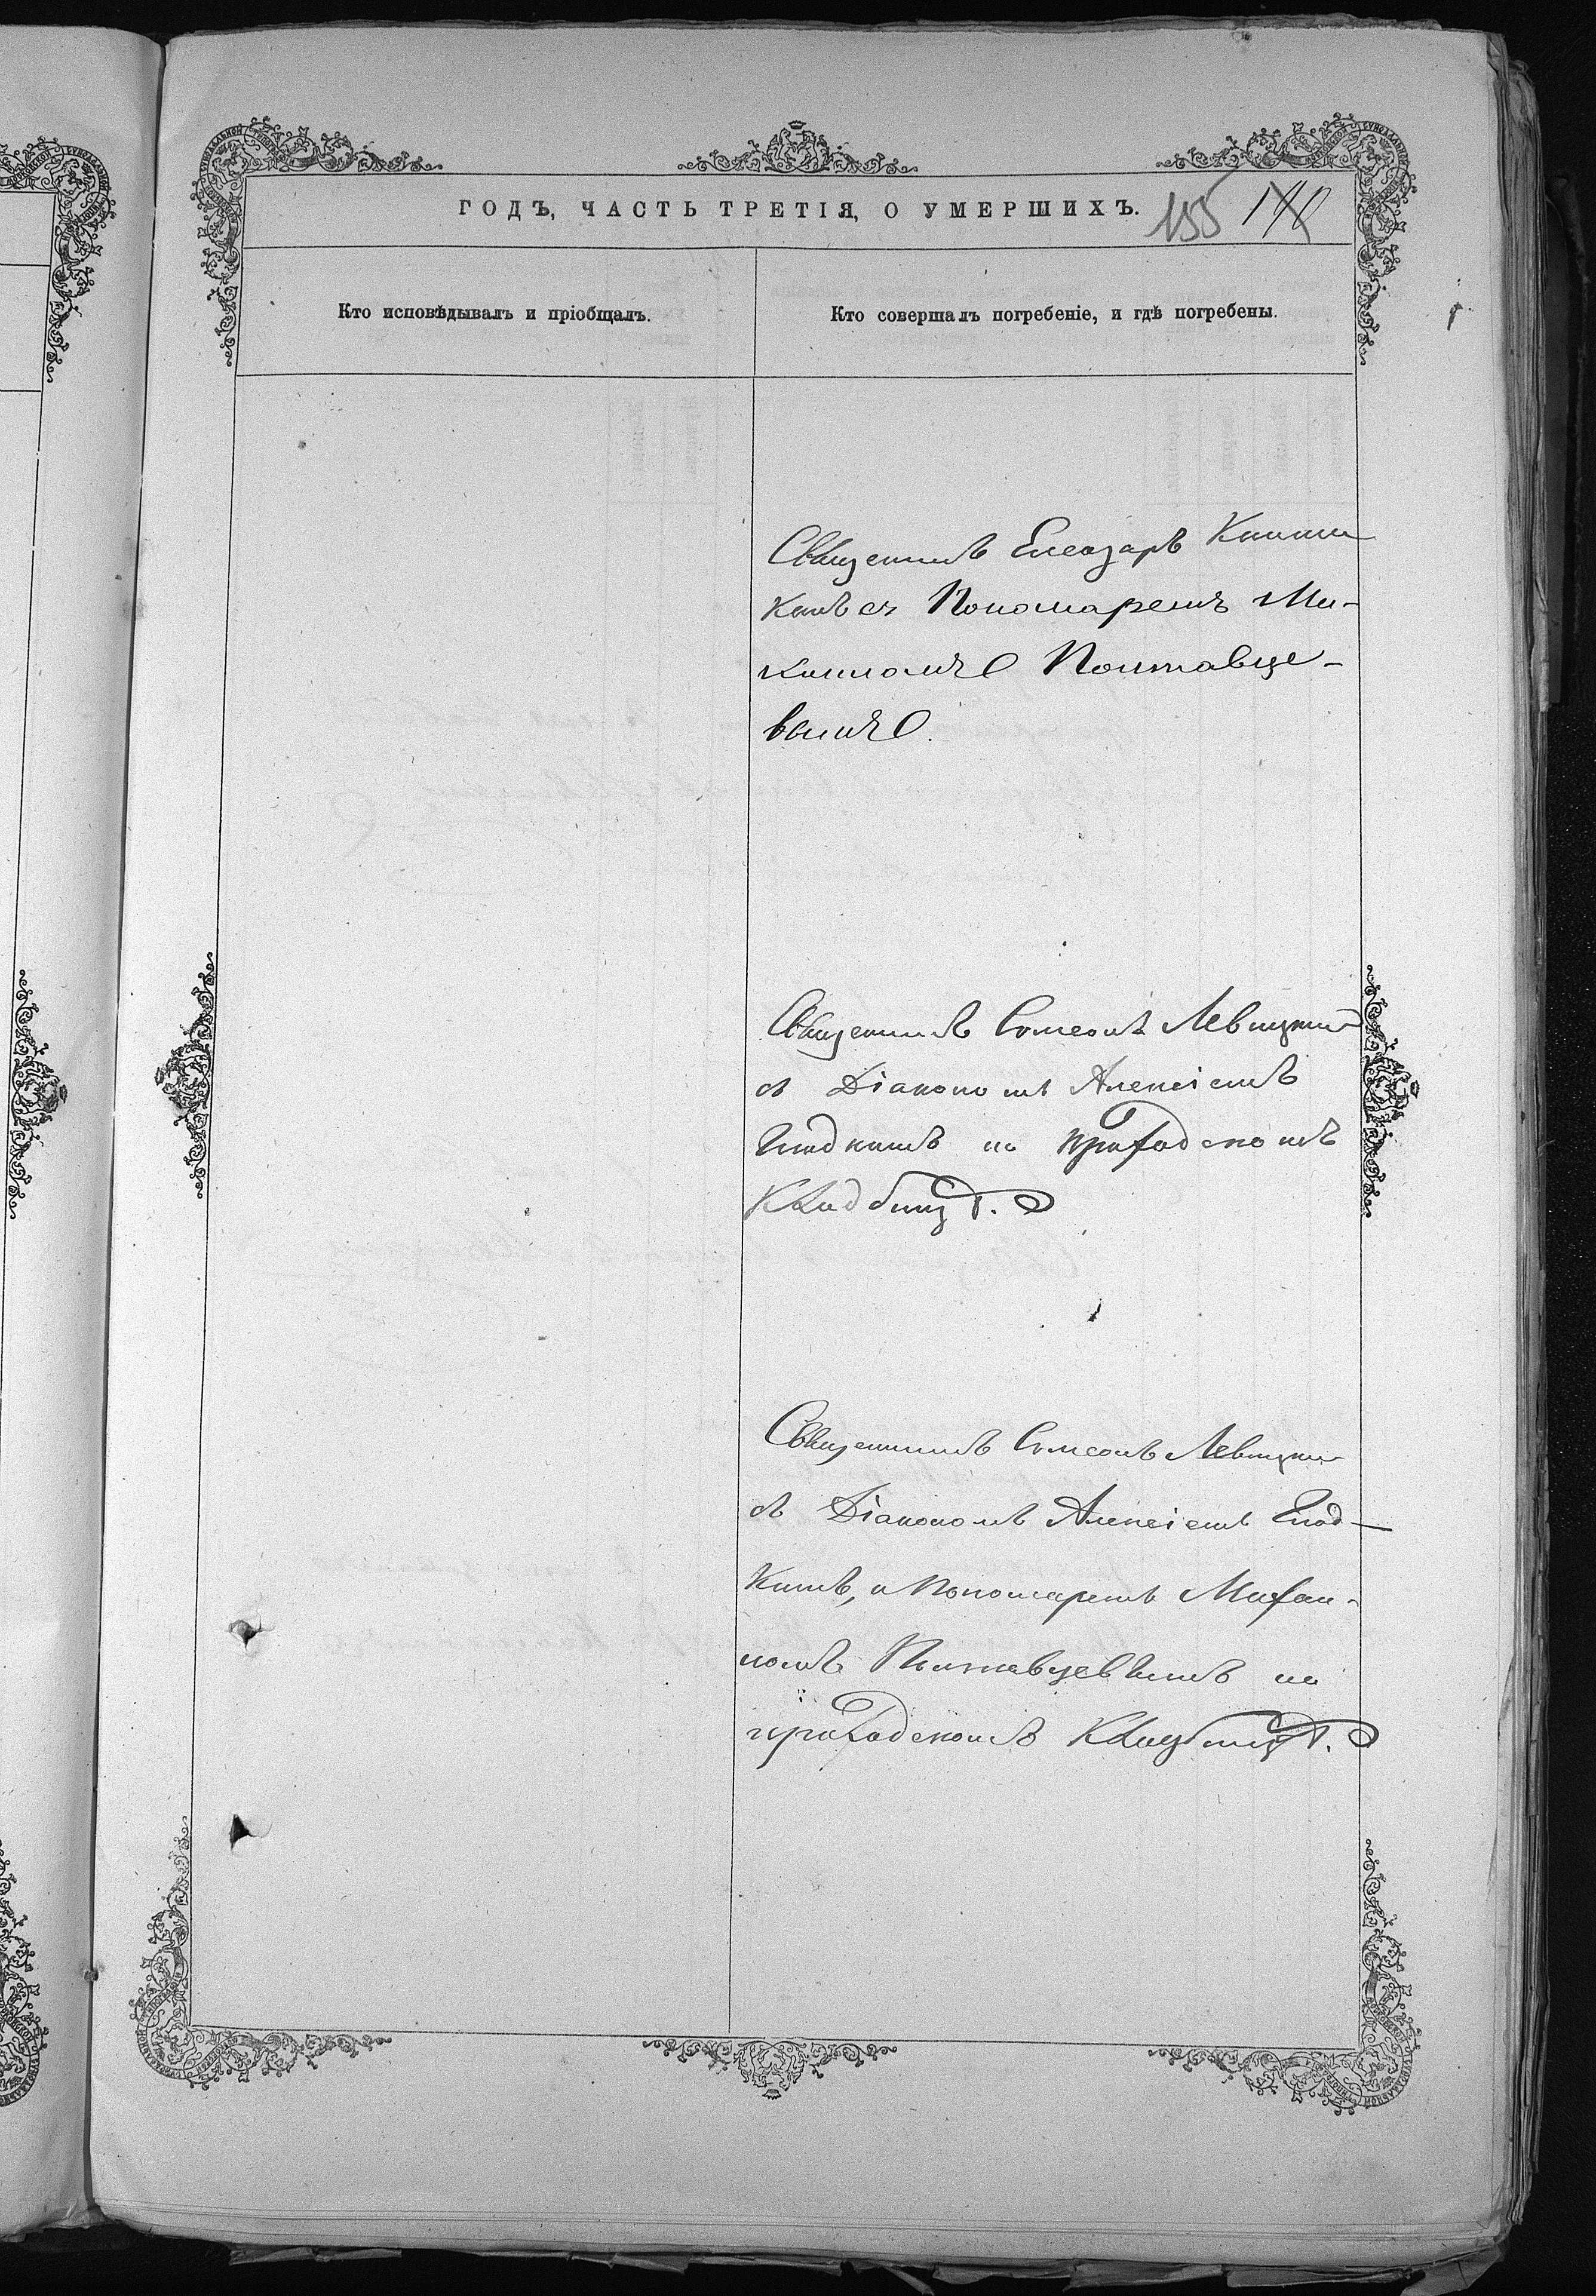 ГОДЪ, ЧАСТЬ ТРЕТІЯ, О УМЕРШИХЪ.
155 140
Кто исповѣдывалъ и пріобщалъ.
Кто совершалъ погребеніе, и гдѣ погребены.
Священникъ Елеазаръ
съ Пономаремъ Ми-
хаиломъ Полтавце-
вымъ.
Священникъ Симеонъ Левицкій
съ Діакономъ Алексіемъ
на приходскомъ
Кладбищѣ.
Священникъ Симеонъ Левицкій
съ Діакономъ Алексіемъ
и Пономаремъ Михаи-
ломъ Полтавцевымъ на
приходскомъ Кладбищѣ.